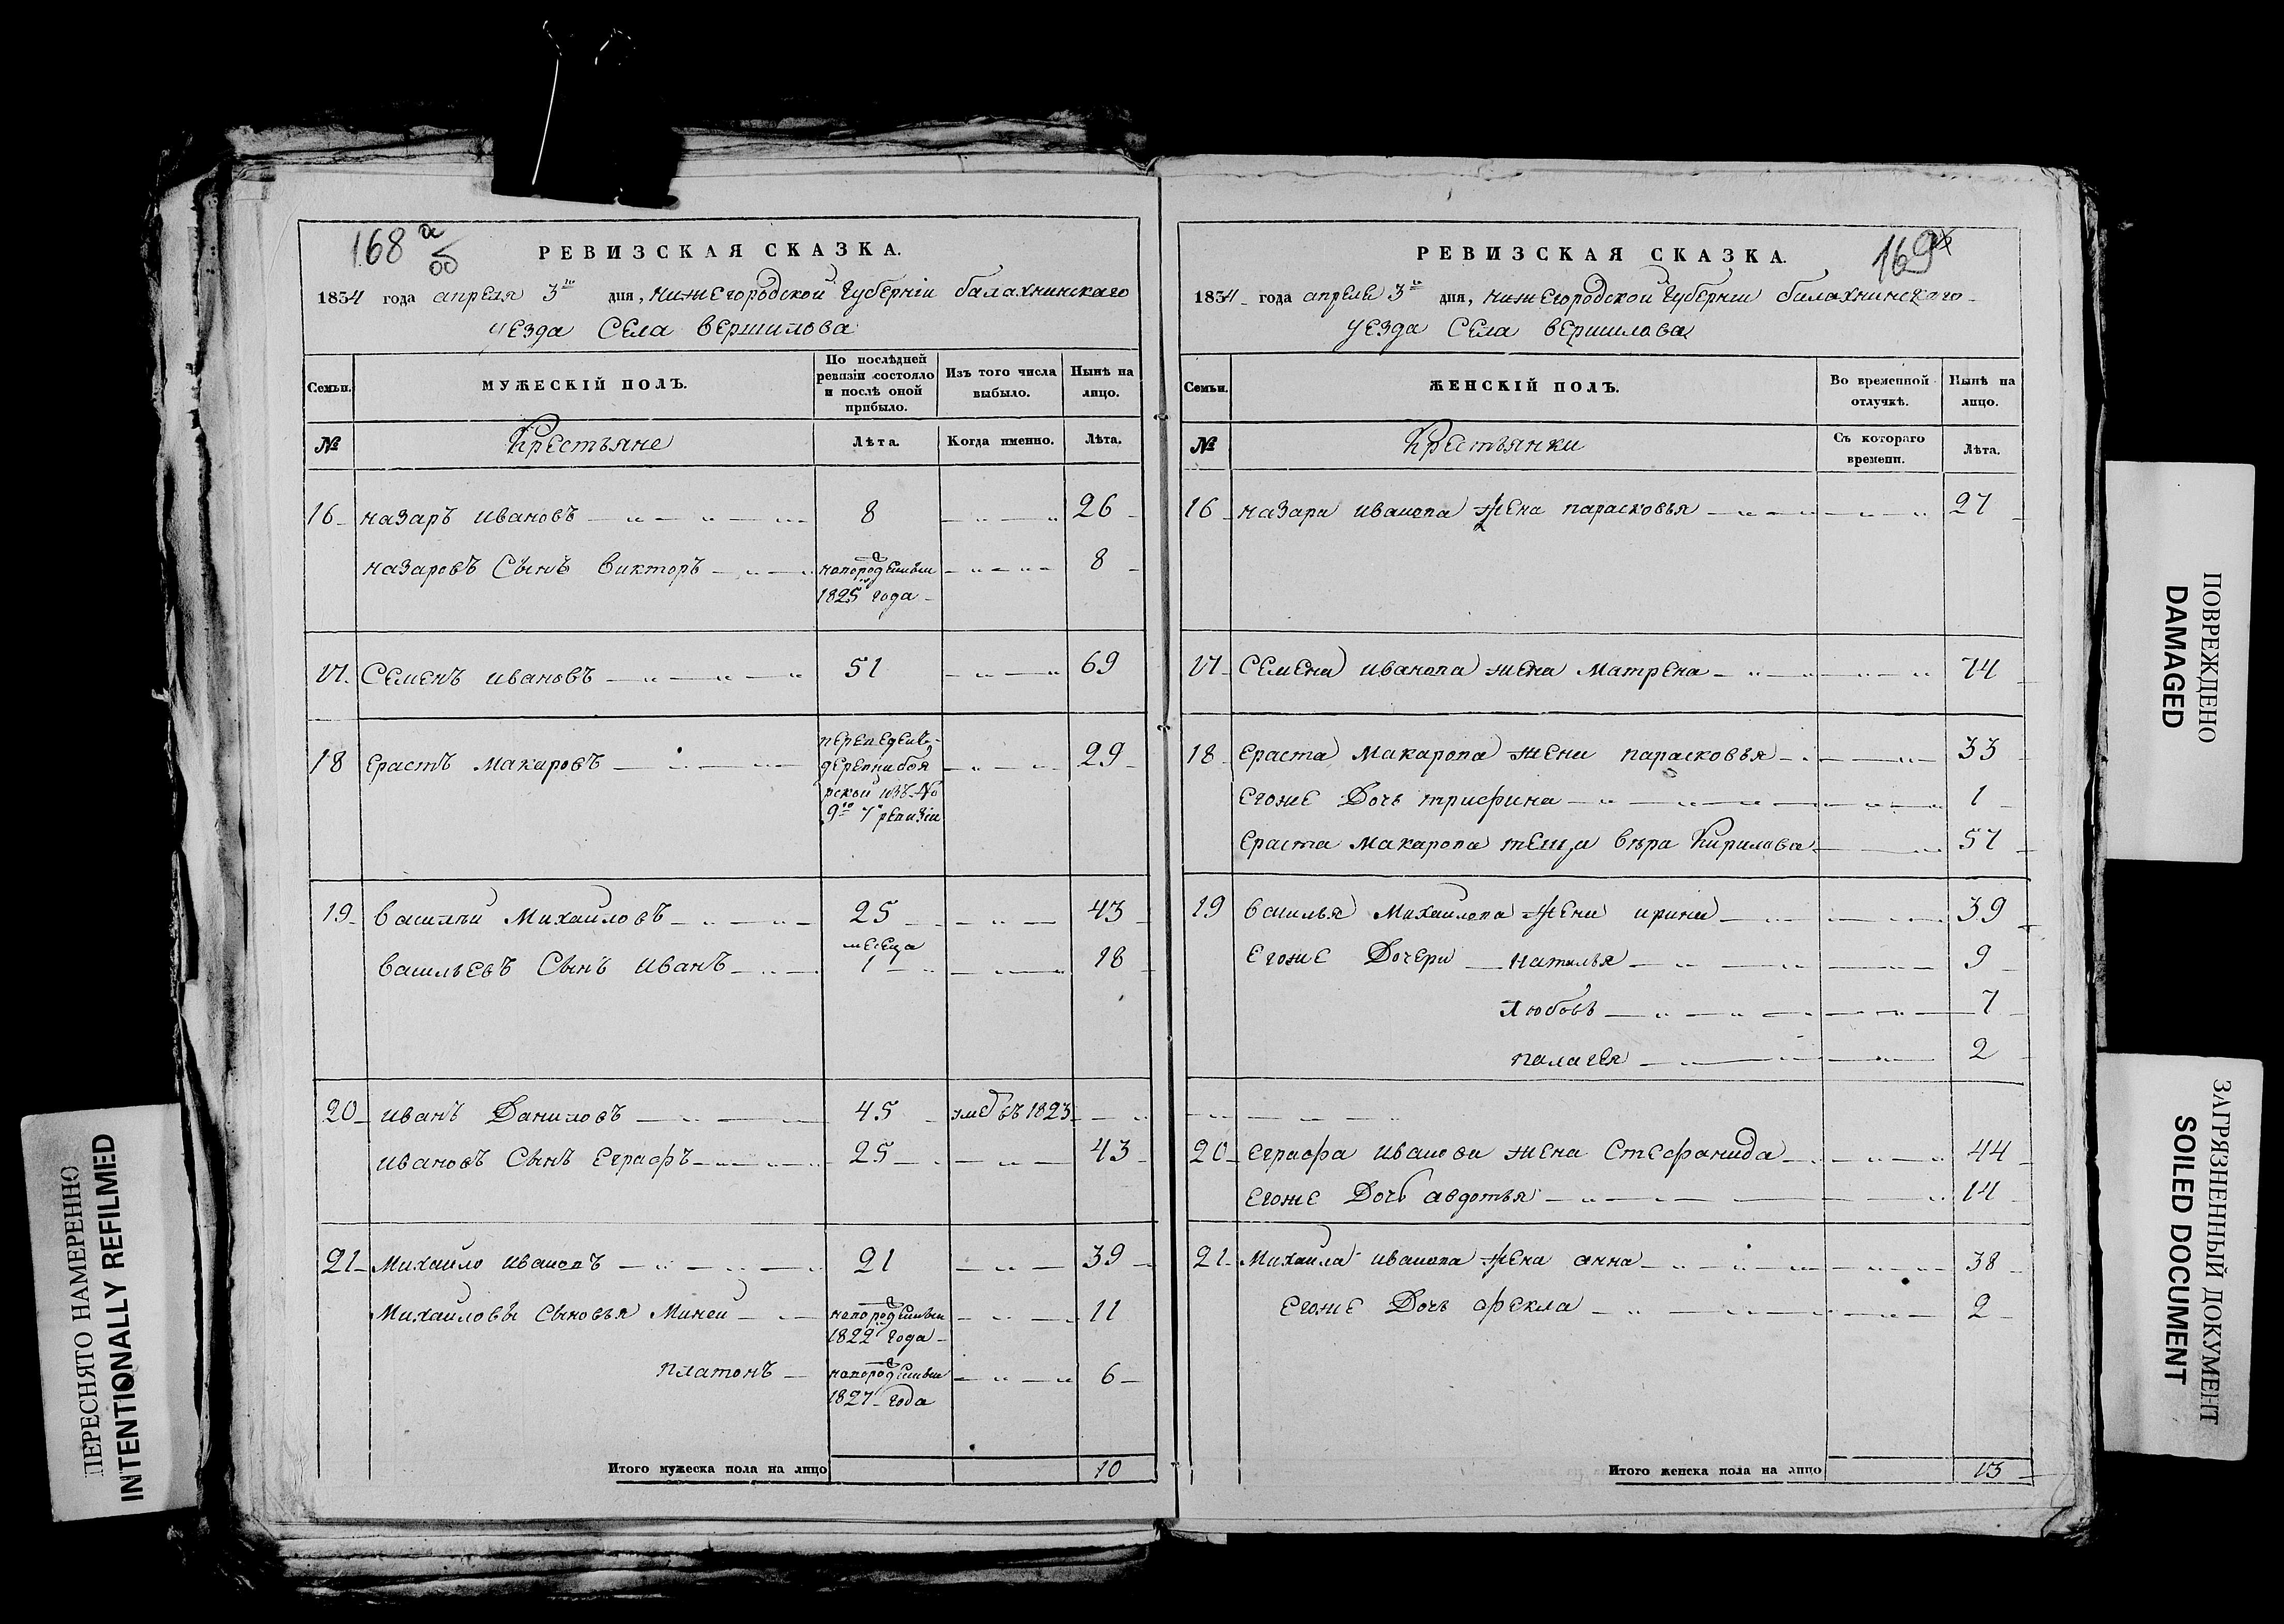 168 а об
РЕВИЗСКАЯ СКАЗКА.
1834 года апреля 3го дня, нижегородской Губерніи балахнинскаго
уезда Села вершилова
Семьи. МУЖЕСКІЙ ПОЛЪ. По послѣдней ревизіи состояло и послѣ оной прибыло. Изъ того числа выбыло. Нынѣ на лицо.
№ Крестьяне Лѣта. Когда именно. Лѣта.
16 назаръ ивановъ 8 26
назаровъ Сынъ викторъ новорожденный 8
1825 года
17. Семенъ ивановъ 51 69
18 ерастъ макаровъ 29
изъ №
9го 7 ревизіи
19 василий Михайловъ 25 43
месеца
васильевъ Сынъ иванъ 1 18
20 иванъ Даниловъ 45 умеръ въ 1823
ивановъ Сынъ еграфъ 25 43
21 Михайло ивановъ 21 39
Михайловы Сыновья Миней 11
1822 года
платонъ 6
1827 года
Итого мужеска пола на лицо 10
169
РЕВИЗСКАЯ СКАЗКА.
1834 года апреля 3го дня, нижегородской Губерніи балахнинскаго
уезда Села вершилова
Семьи. ЖЕНСКІЙ ПОЛЪ. Во временной отлучкѣ. Нынѣ на лицо.
№ Крестьянки Съ котораго времени. Лѣта.
16 назара иванова жена парасковья 27
17 Семена иванова жена Матрена 74
18 ераста Макарова жена парасковья 33
егоже Дочь трифина 1
ераста Макарова теща вѣра Кирилова 57
19 василья Михайлова жена ирина 39
егоже Дочери наталья 9
Любовь 7
палагея 2
20 еграфа иванова жена Стефанида 44
егоже Дочь авдотья 14
21 Михайла иванова жена анна 38
егоже Дочь фекла 2
Итого женска пола на лицо 13
ПЕРЕСНЯТО НАМЕРЕННО
INTENTIONALLY REFILMED
ПОВРЕЖДЕНО
DAMAGED
ЗАГРЯЗНЕННЫЙ ДОКУМЕНТ
SOILED DOCUMENT